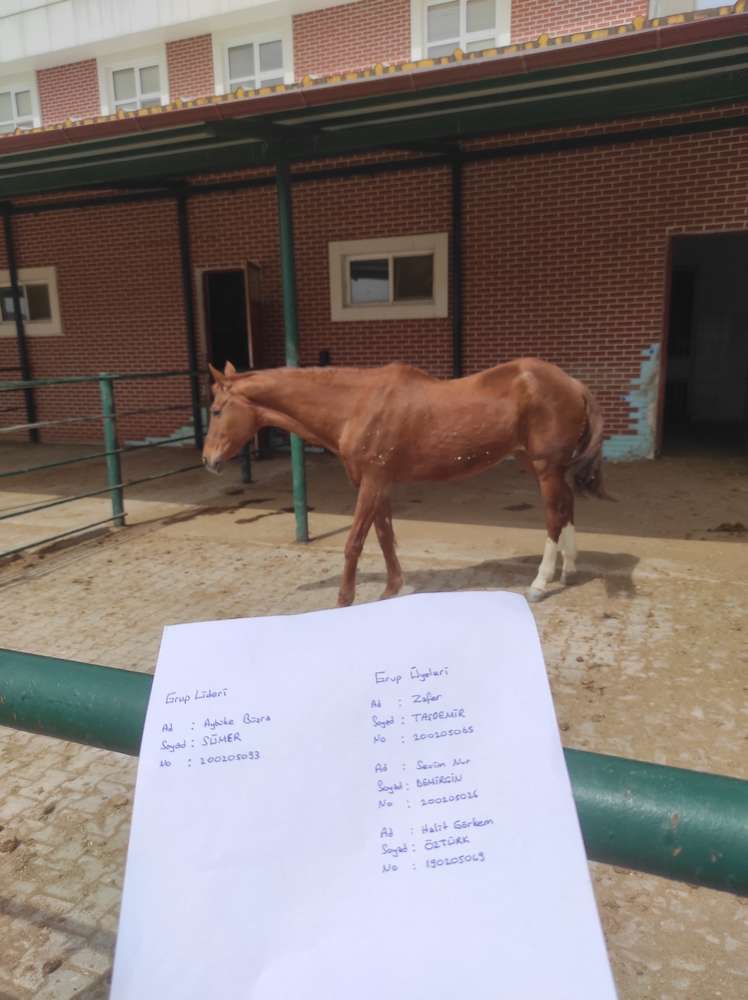 Grup Lideri
Ad : Aybüke Büşra
Soyad : SÜMER
No : 200205093
Grup Üyeleri
Ad : Zafer
Soyad : TAŞDEMİR
No : 200205065
Ad : Sevim Nur
Soyad : DEMİRGİN
No : 200205026
Ad : Halit Görkem
Soyad : ÖZTÜRK
No : 190205049